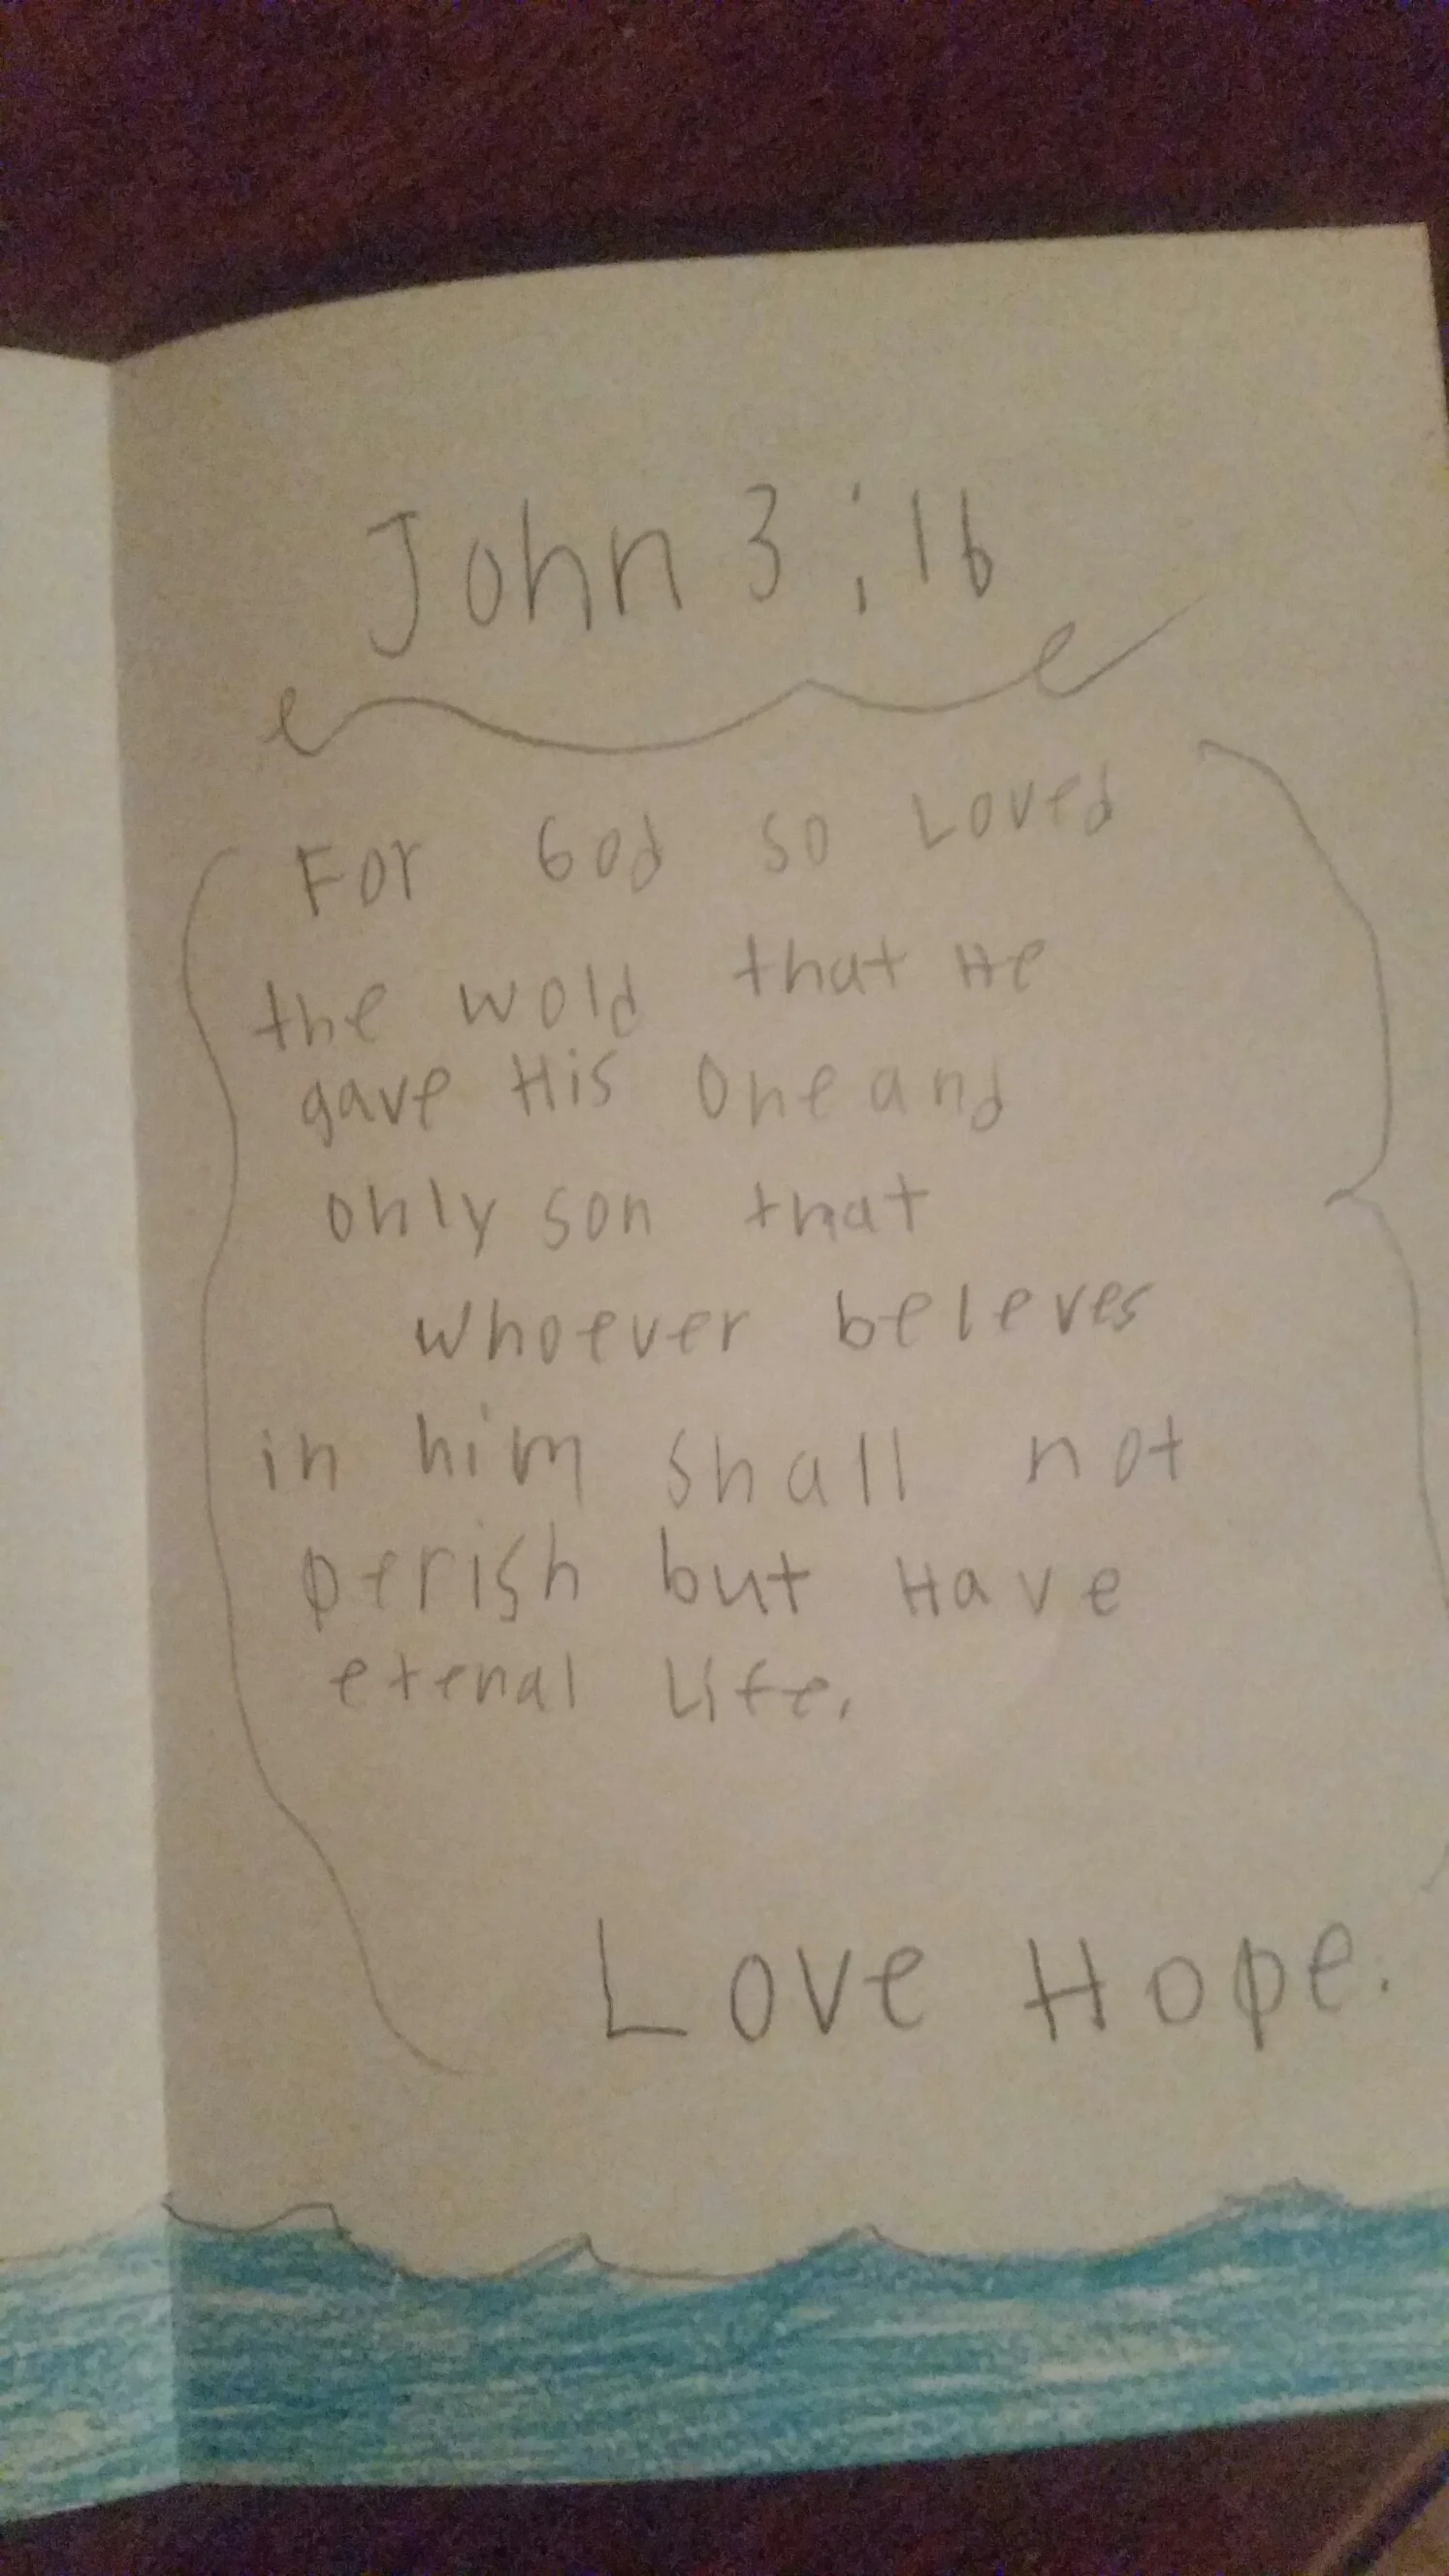 John 3;16
For God so Loved
the wold that He
gave His one and
only son that
whoever beleves
in him shall not
perish but Have
etenal Life.
Love Hope.